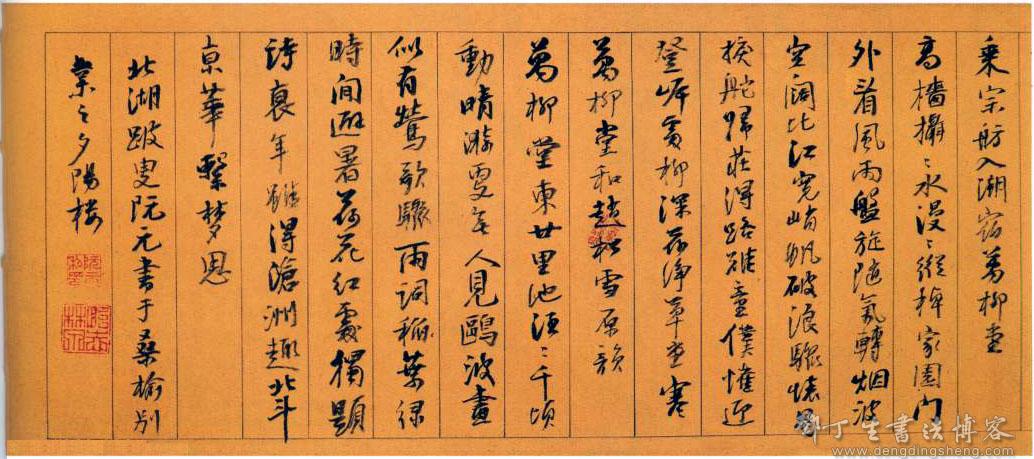 乘宗舫入湖宿萬柳堂
高檣攝〻水漫〻縱棹家園門
外看風雨盤旋隨氣轉烟波
空闊比江寬峭帆破浪驟懷
捩舵歸莊得路難童僕懽迎
登岸處柳深荷淨草堂寒
萬柳堂和趙松雪原韻
萬柳堂東廿里池 〻千頃
動晴漪更無人見鷗波畫
似有鶯歌驟雨詞稲葉綠
時間避暑荷花紅處獨題
詩衰年 得滄洲趣北斗
京華繫夢思
北湖跛叟阮元書于桑榆別
業之夕陽樓
邓丁生书法博客
www.dengdingsheng.com